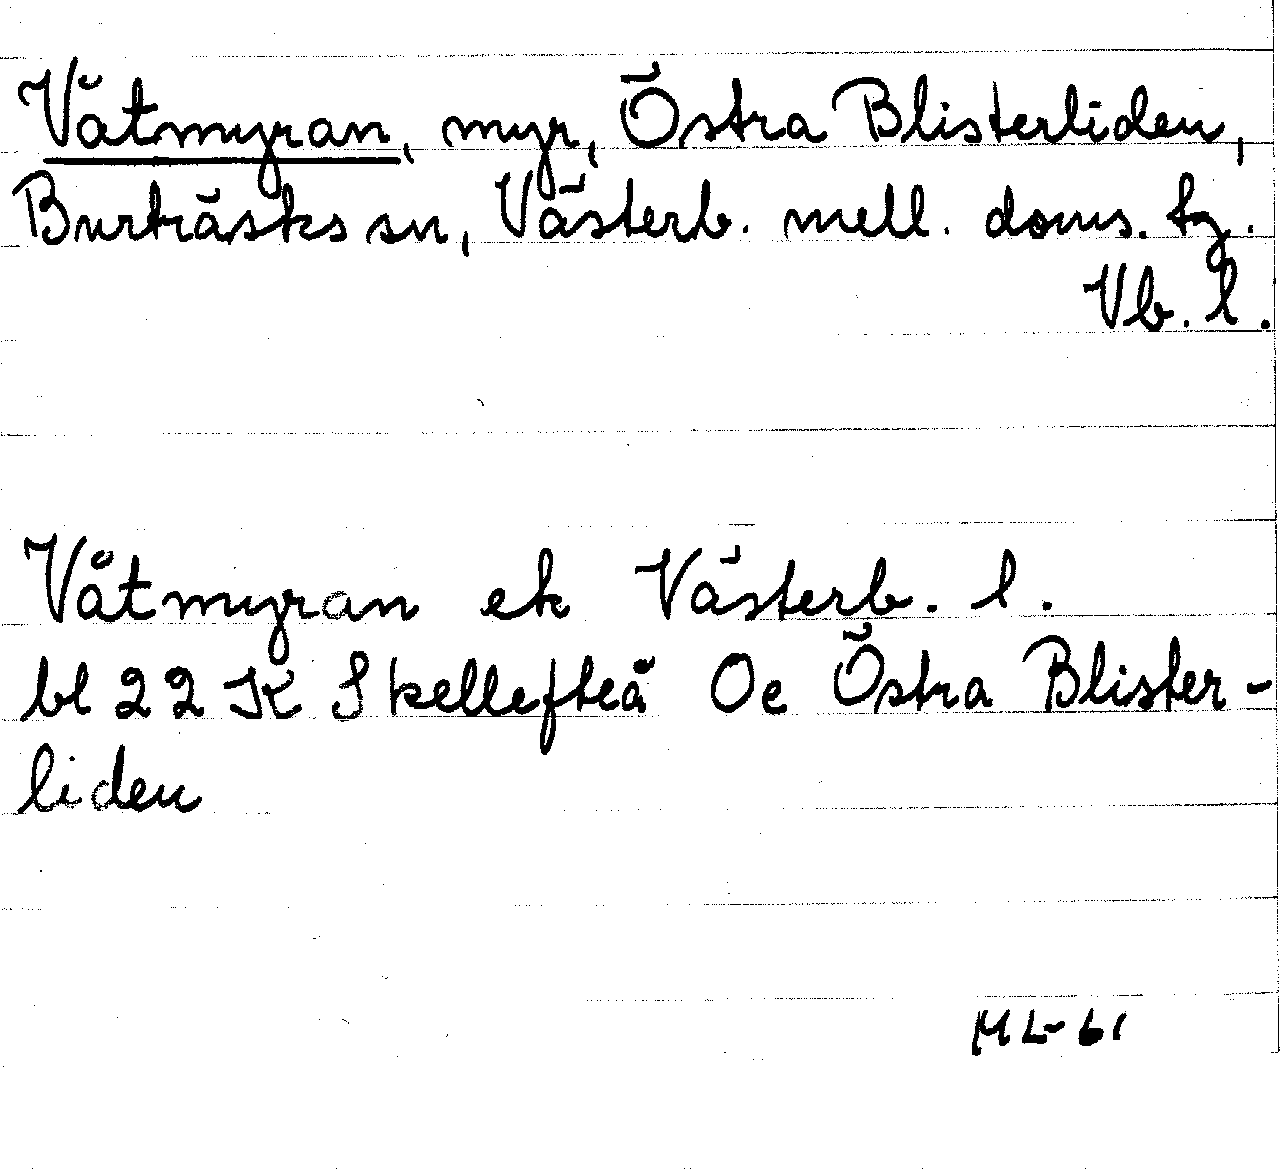 Våtmyran, myr, Östra Blisterliden,
Burträsks sn, Västerb. mell. doms. tg.
Vb. l.
Våtmyran ek Västerb. l.
bl 22 K Skellefteå Oe Östra Blister-
liden
ML-61